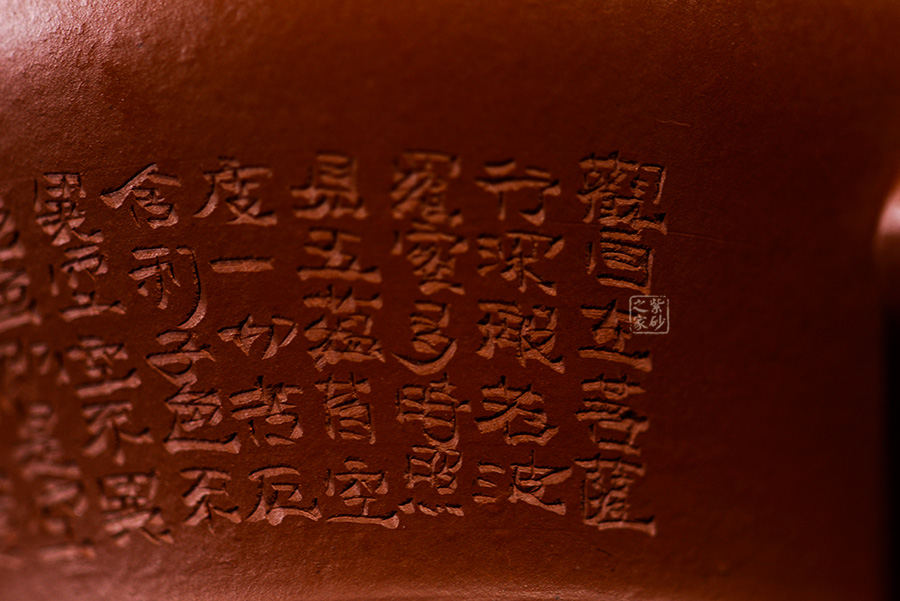 觀自在菩薩
行深般若波
羅蜜多時照
見五蘊皆空
度一切苦厄
舍利子色不
異空空不異
紫砂之家